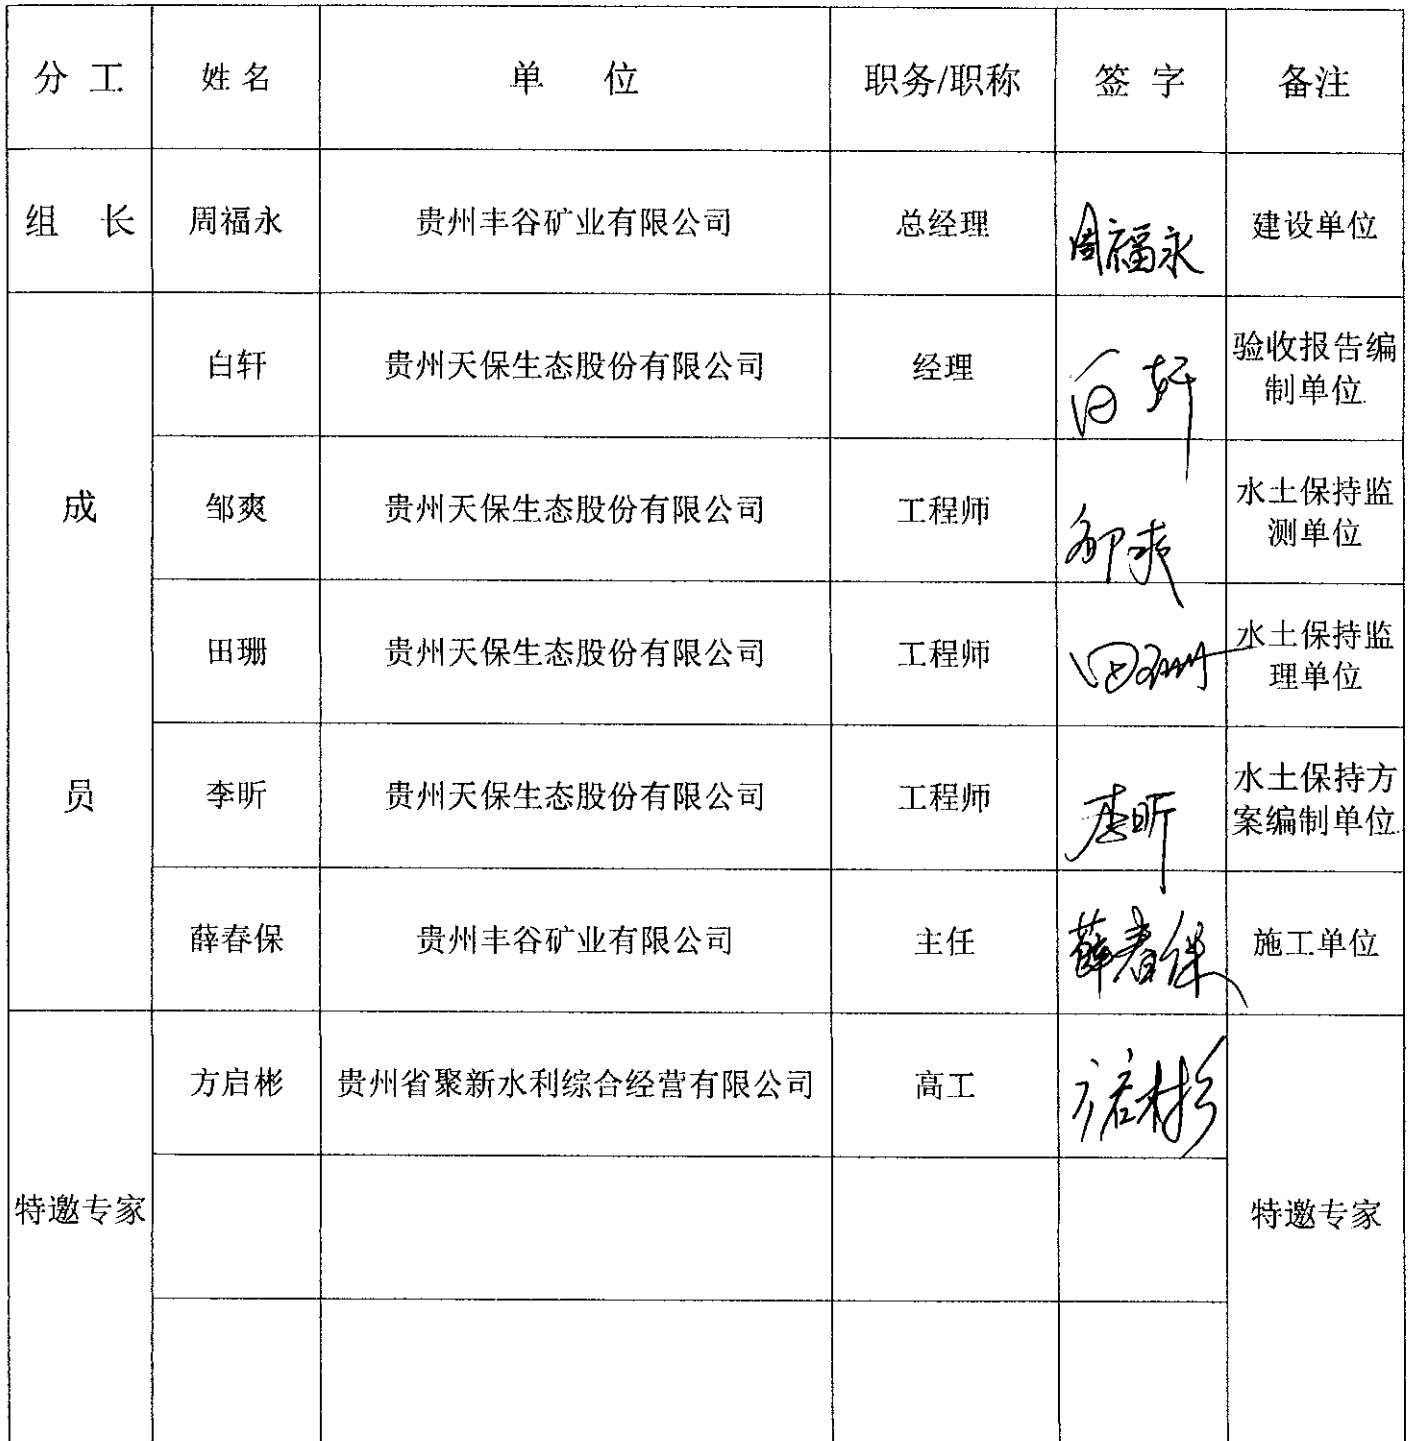 分 工 姓 名 单 位 职务/职称 签 字 备注
组 长 周福永 贵州丰谷矿业有限公司 总经理 周福永 建设单位
成 员
白轩 贵州天保生态股份有限公司 经理 白轩 验收报告编
制单位
邹爽 贵州天保生态股份有限公司 工程师 邹爽 水土保持监
测单位
田珊 贵州天保生态股份有限公司 工程师 田珊 水土保持监
理单位
李昕 贵州天保生态股份有限公司 工程师 李昕 水土保持方
案编制单位
薛春保 贵州丰谷矿业有限公司 主任 薛春保 施工单位
特邀专家 方启彬 贵州省聚新水利综合经营有限公司 高工 方启彬 特邀专家